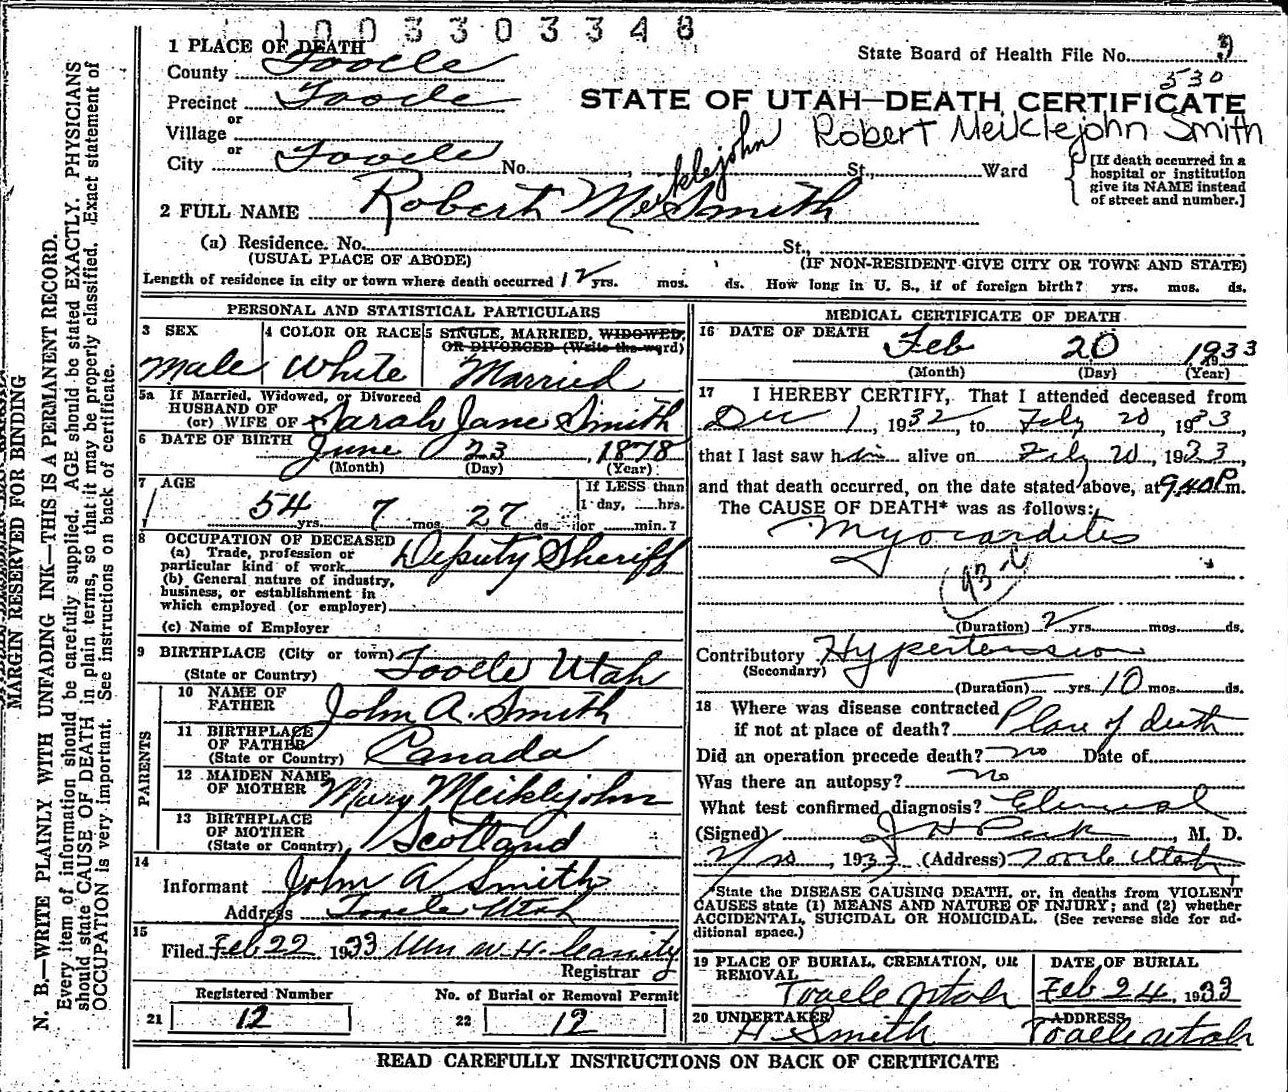 1003303348
State Board of Health File No. 3
530
STATE OF UTAH—DEATH CERTIFICATE
Robert Meiklejohn Smith
1 PLACE OF DEATH
County Tooele
Precinct Tooele
or
Village
or
City Tooele No. St., Ward
[If death occurred in a
hospital or institution
give its NAME instead
of street and number.]
2 FULL NAME Robert Meiklejohn Smith
(a) Residence. No. St.,
(USUAL PLACE OF ABODE) (IF NON-RESIDENT GIVE CITY OR TOWN AND STATE)
Length of residence in city or town where death occurred 12 yrs. mos. ds. How long in U. S., if of foreign birth? yrs. mos. ds.
PERSONAL AND STATISTICAL PARTICULARS
3 SEX
Male
4 COLOR OR RACE
White
5 SINGLE, MARRIED, WIDOWED,
OR DIVORCED (Write the word)
Married
5a If Married, Widowed, or Divorced
HUSBAND OF
(or) WIFE OF Sarah Jane Smith
6 DATE OF BIRTH June 23, 1878
(Month) (Day) (Year)
7 AGE
54 yrs. 7 mos. 27 ds.
If LESS than
1 day, hrs.
or min.?
8 OCCUPATION OF DECEASED
(a) Trade, profession or
particular kind of work Deputy Sheriff
(b) General nature of industry,
business, or establishment in
which employed (or employer)
(c) Name of Employer
9 BIRTHPLACE (City or town) Tooele Utah
(State or Country)
PARENTS
10 NAME OF
FATHER John A. Smith
11 BIRTHPLACE
OF FATHER Canada
(State or Country)
12 MAIDEN NAME
OF MOTHER Mary Meiklejohn
13 BIRTHPLACE
OF MOTHER Scotland
(State or Country)
14
Informant John A Smith
Address Tooele Utah
15
Filed Feb 22 1933 W. H.
Registrar
Registered Number
21 12
No. of Burial or Removal Permit
22 12
MEDICAL CERTIFICATE OF DEATH
16 DATE OF DEATH Feb 20 1933
(Month) (Day) (Year)
17 I HEREBY CERTIFY, That I attended deceased from
Dec 1, 1932, to Feby 20, 1933,
that I last saw him alive on Feby 20, 1933,
and that death occurred, on the date stated above, at 9:40 P m.
The CAUSE OF DEATH* was as follows:
Myocardites
93-c
(Duration) 2 yrs. mos. ds.
Contributory Hypertension
(Secondary)
(Duration) yrs. 10 mos. ds.
18 Where was disease contracted
if not at place of death? Place of death
Did an operation precede death? no Date of
Was there an autopsy? no
What test confirmed diagnosis?
(Signed) J H Peck, M. D.
2/20, 1933 (Address) Tooele Utah
*State the DISEASE CAUSING DEATH, or, in deaths from VIOLENT
CAUSES state (1) MEANS AND NATURE OF INJURY; and (2) whether
ACCIDENTAL, SUICIDAL OR HOMICIDAL. (See reverse side for ad-
ditional space.)
19 PLACE OF BURIAL, CREMATION, OR
REMOVAL
Tooele Utah
DATE OF BURIAL
Feb 24, 1933
20 UNDERTAKER
H Smith
ADDRESS
Tooele Utah
READ CAREFULLY INSTRUCTIONS ON BACK OF CERTIFICATE
MARGIN RESERVED FOR BINDING
N. B.—WRITE PLAINLY WITH UNFADING INK—THIS IS A PERMANENT RECORD.
Every item of information should be carefully supplied. AGE should be stated EXACTLY. PHYSICIANS
should state CAUSE OF DEATH in plain terms, so that it may be properly classified. Exact statement of
OCCUPATION is very important. See instructions on back of certificate.